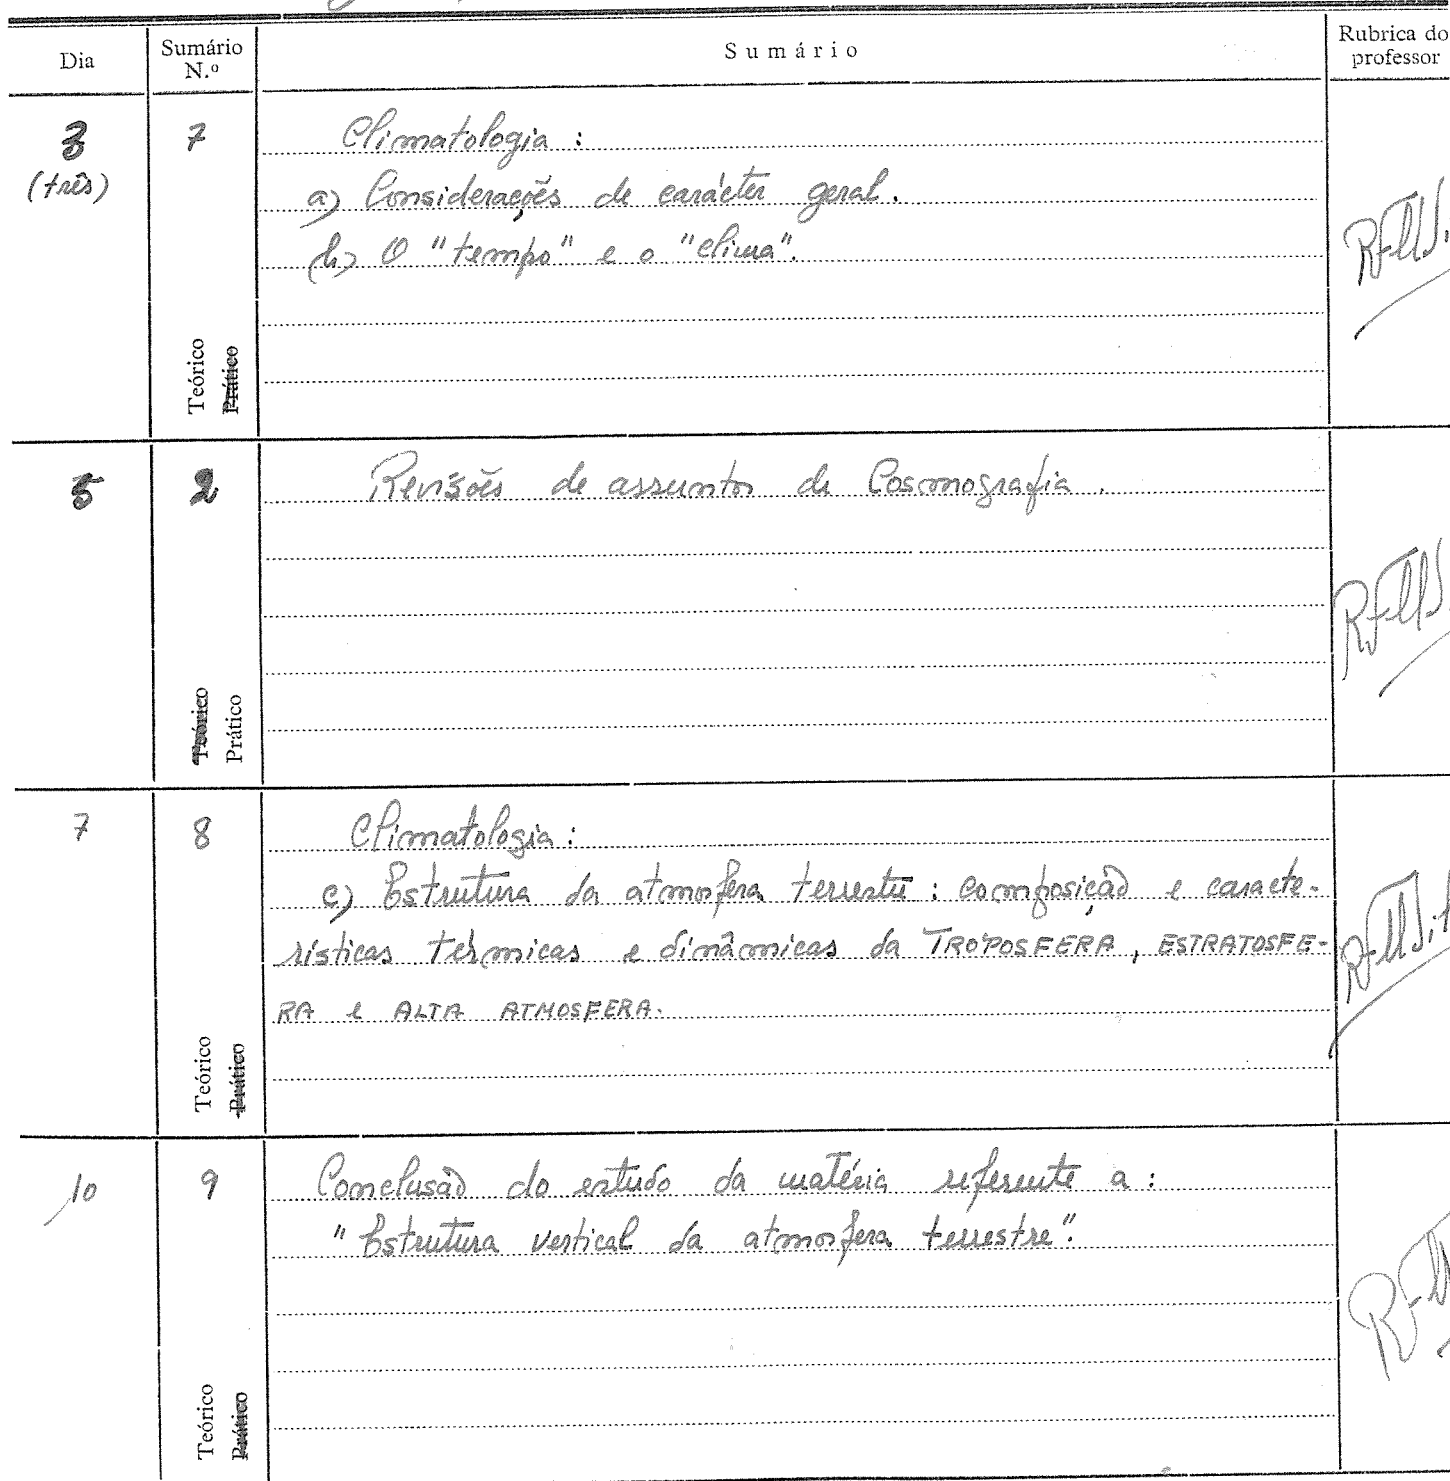 Dia
Sumário N.º
Sumário
Rubrica do professor
3
(três)
7
Climatologia :
a) Considerações de carácter geral.
b) O "tempo" e o "clima".
Teórico
Prático
5
2
Revisões de assuntos de Cosmografia.
Teórico
Prático
7
8
Climatologia :
c) Estrutura da atmosfera terrestre : composição e caracte-
rísticas térmicas e dinâmicas da TROPOSFERA, ESTRATOSFE-
RA e ALTA ATMOSFERA.
Teórico
Prático
10
9
Conclusão do estudo da matéria referente a :
"Estrutura vertical da atmosfera terrestre".
Teórico
Prático